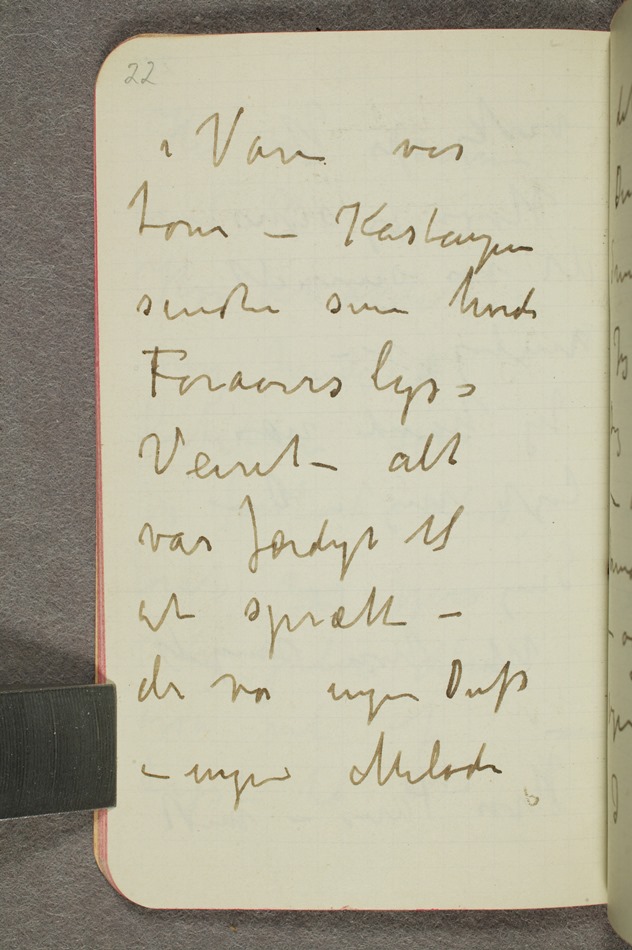 22
i Vasen var
tom – Kastanjen
sendte sine hvide
Foraarslys –
Veiret – alt
var færdigt til
at sprætte –
der var ingen Duft
– ingen Melodi